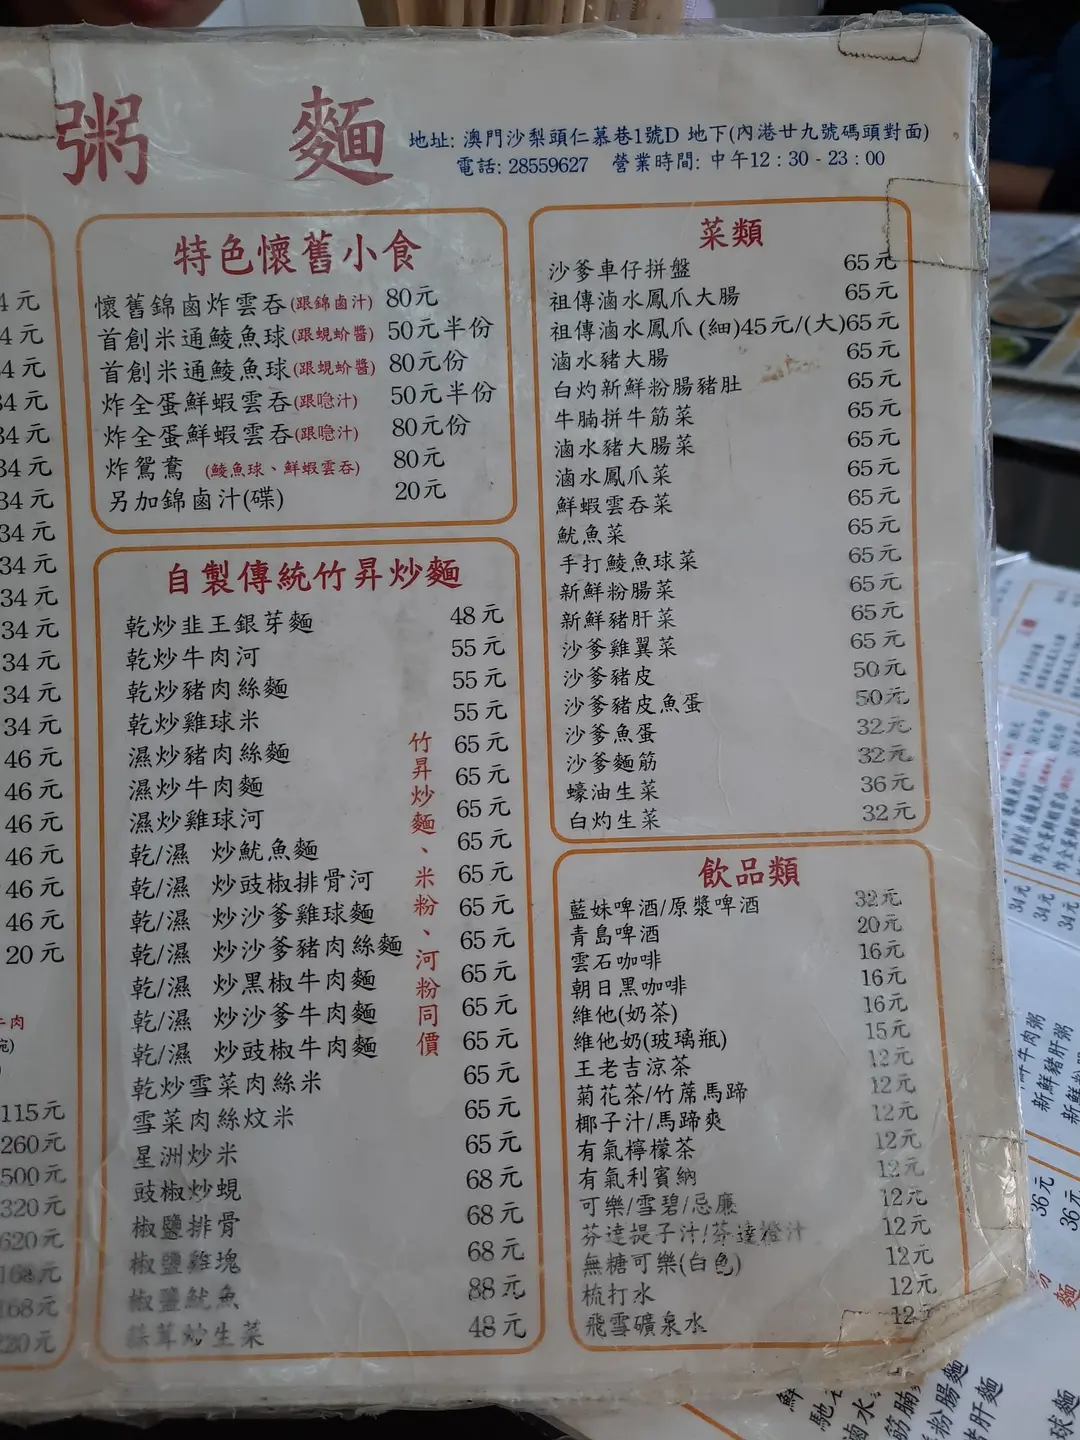 粥 麵
地址: 澳門沙梨頭仁慕巷1號D 地下(內港廿九號碼頭對面)
電話: 28559627 營業時間: 中午12:30-23:00
4元
4元
4元
34元
34元
34元
34元
34元
34元
34元
34元
34元
34元
34元
46元
46元
46元
46元
46元
46元
20元
牛肉
115元
260元
500元
320元
620元
168元
168元
220元
特色懷舊小食
懷舊錦鹵炸雲吞(跟錦鹵汁) 80元
首創米通鯪魚球(跟蜆蚧醬) 50元半份
首創米通鯪魚球(跟蜆蚧醬) 80元份
炸全蛋鮮蝦雲吞(跟喼汁) 50元半份
炸全蛋鮮蝦雲吞(跟喼汁) 80元份
炸鴛鴦 (鯪魚球、鮮蝦雲吞) 80元
另加錦鹵汁(碟) 20元
自製傳統竹昇炒麵
乾炒韭王銀芽麵 48元
乾炒牛肉河 55元
乾炒豬肉絲麵 55元
乾炒雞球米 55元
濕炒豬肉絲麵 65元
濕炒牛肉麵 65元
濕炒雞球河 65元
乾/濕 炒魷魚麵 65元
乾/濕 炒豉椒排骨河 65元
乾/濕 炒沙爹雞球麵 65元
乾/濕 炒沙爹豬肉絲麵 65元
乾/濕 炒黑椒牛肉麵 65元
乾/濕 炒沙爹牛肉麵 65元
乾/濕 炒豉椒牛肉麵 65元
乾炒雪菜肉絲米 65元
雪菜肉絲炆米 65元
星洲炒米 65元
豉椒炒蜆 68元
椒鹽排骨 68元
椒鹽雞塊 68元
椒鹽魷魚 88元
蒜茸炒生菜 48元
竹昇炒麵、米粉、河粉同價
菜類
沙爹車仔拼盤 65元
祖傳滷水鳳爪大腸 65元
祖傳滷水鳳爪(細)45元/(大)65元
滷水豬大腸 65元
白灼新鮮粉腸豬肚 65元
牛腩拼牛筋菜 65元
滷水豬大腸菜 65元
滷水鳳爪菜 65元
鮮蝦雲吞菜 65元
魷魚菜 65元
手打鯪魚球菜 65元
新鮮粉腸菜 65元
新鮮豬肝菜 65元
沙爹雞翼菜 65元
沙爹豬皮 50元
沙爹豬皮魚蛋 50元
沙爹魚蛋 32元
沙爹麵筋 32元
蠔油生菜 36元
白灼生菜 32元
飲品類
藍妹啤酒/原漿啤酒 32元
青島啤酒 20元
雲石咖啡 16元
朝日黑咖啡 16元
維他(奶茶) 16元
維他奶(玻璃瓶) 15元
王老吉涼茶 12元
菊花茶/竹蔗馬蹄 12元
椰子汁/馬蹄爽 12元
有氣檸檬茶 12元
有氣利賓納 12元
可樂/雪碧/忌廉 12元
芬達提子汁/芬達橙汁 12元
無糖可樂(白色) 12元
梳打水 12元
飛雪礦泉水 12元
34元
34元
34元
牛肉粥
新鮮豬肝粥
36元
36元
麵
滷水
粉腸麵
肝麵
球麵